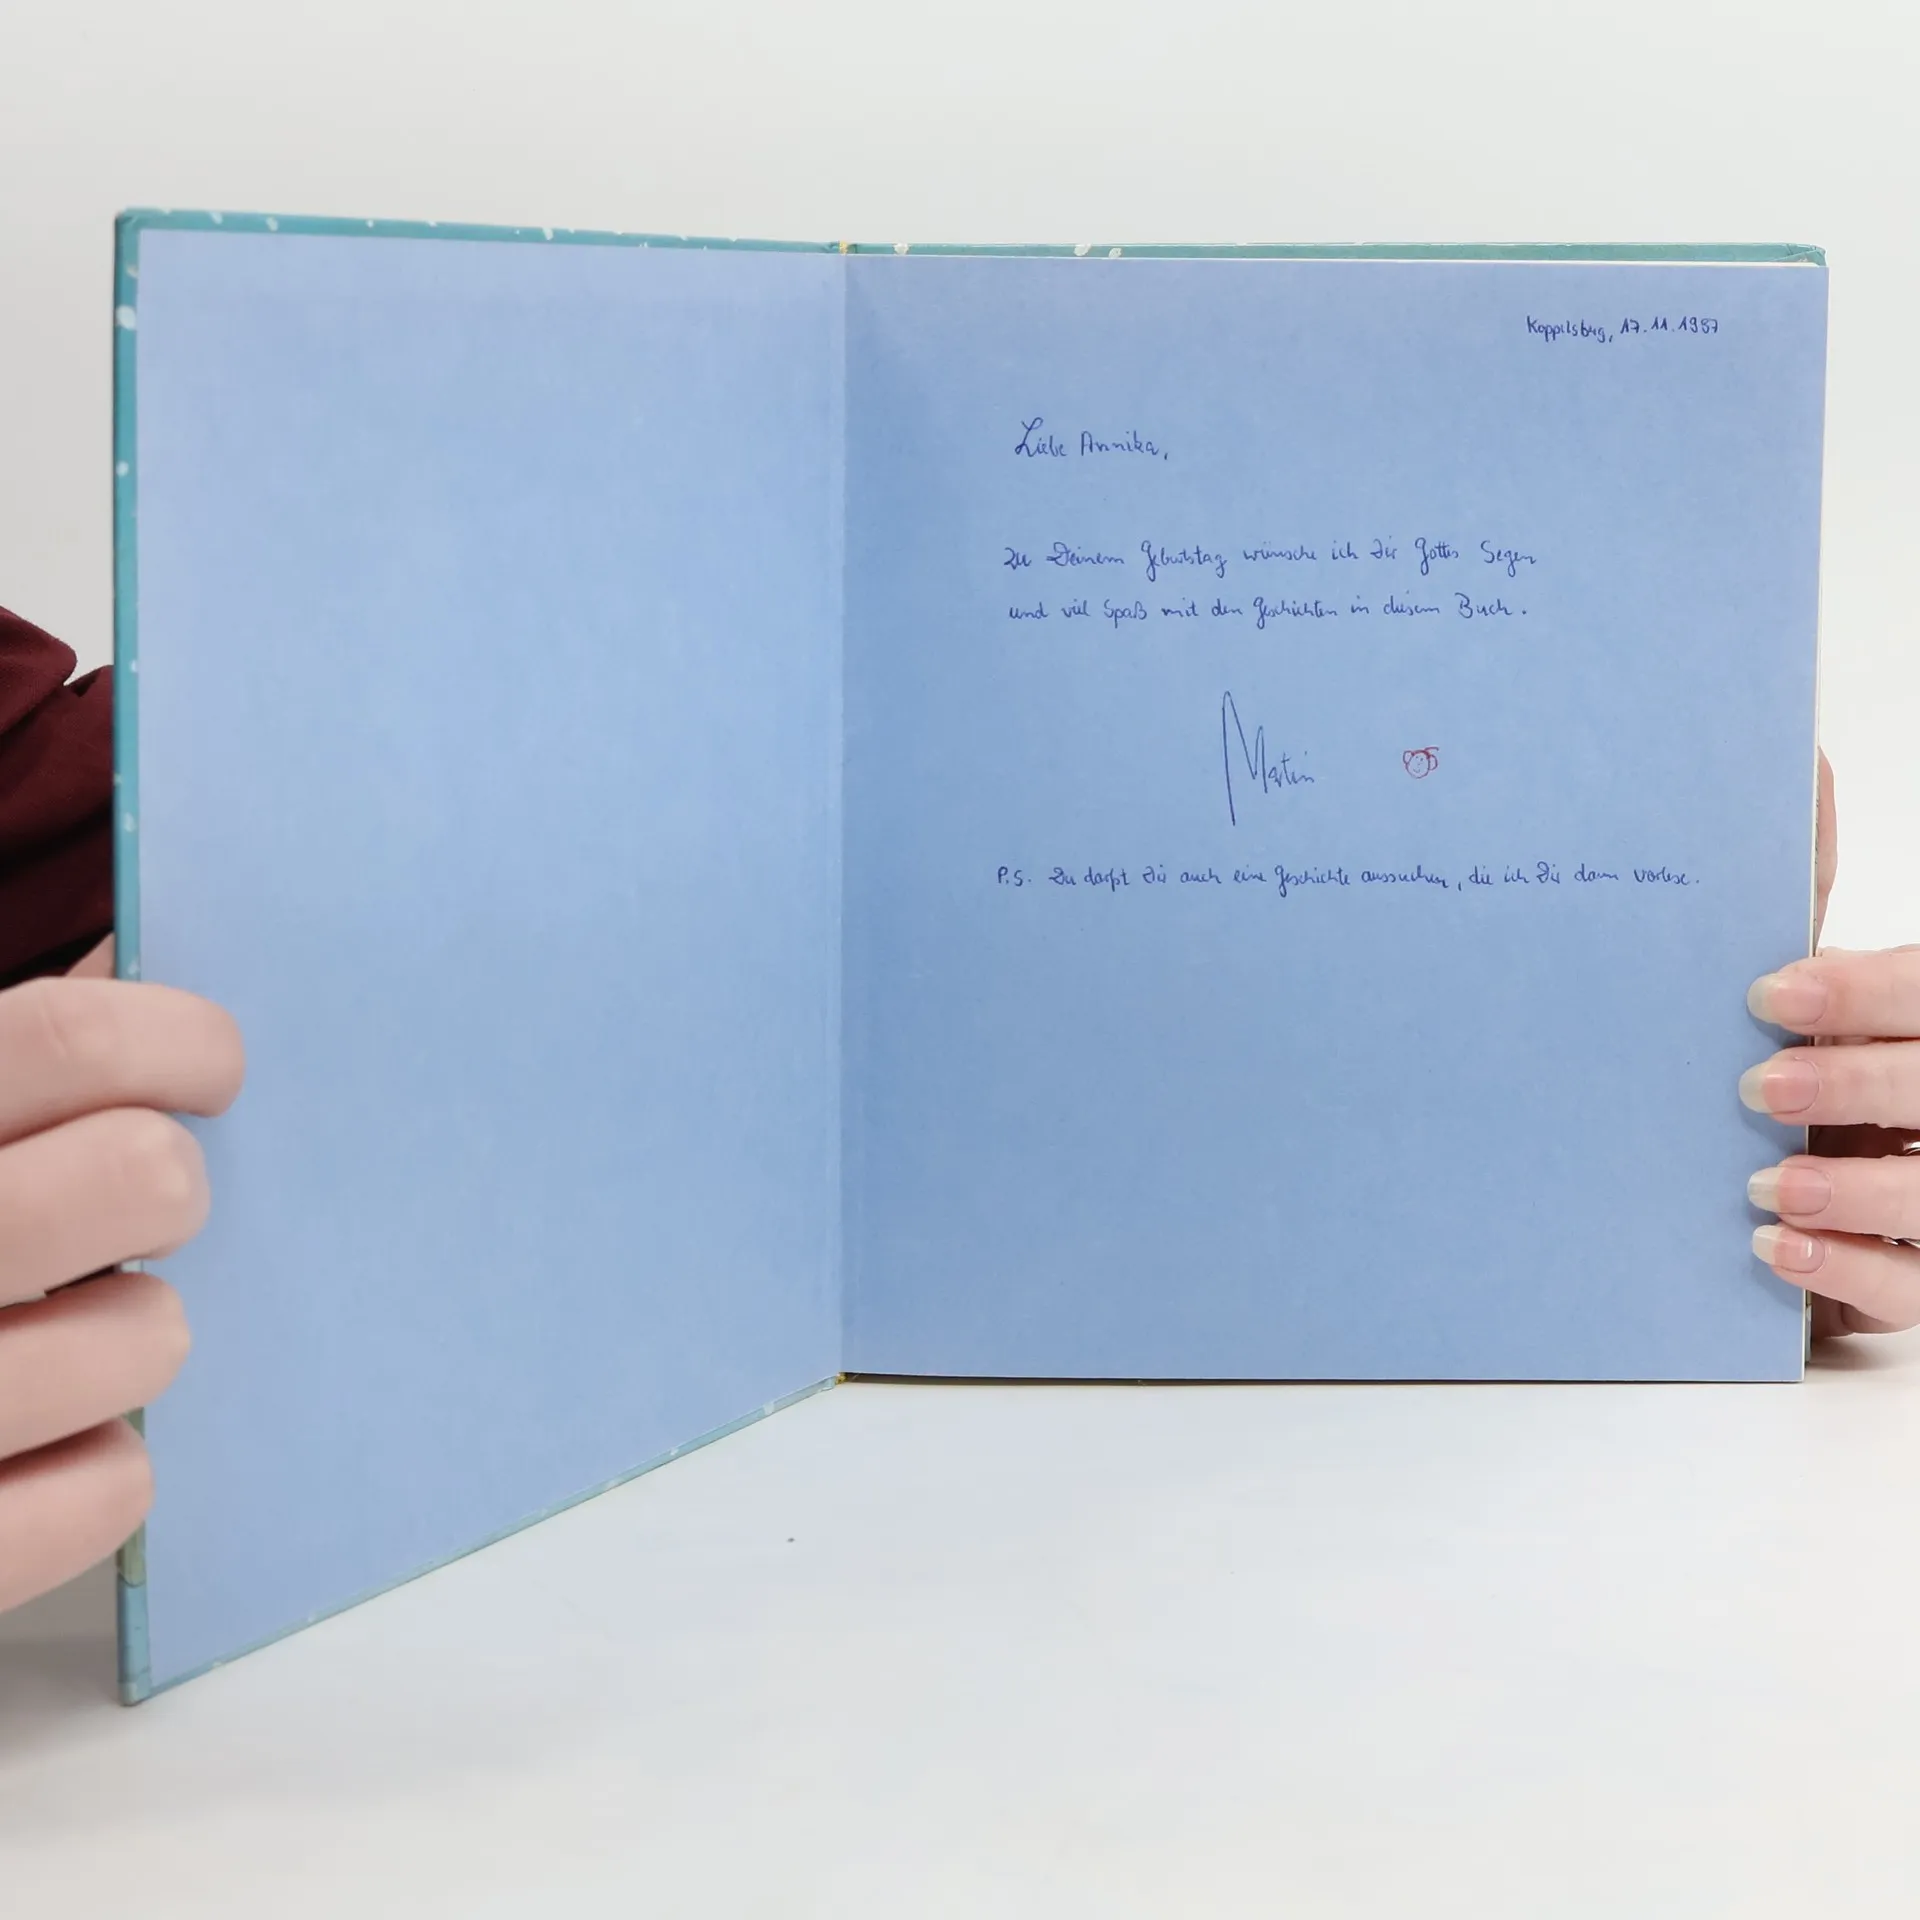 Koppilsberg, 17.11.1997
Liebe Annika,
Zu Deinem Geburtstag wünsche ich Dir Gottes Segen
und viel Spaß mit den Geschichten in diesem Buch.
Martin
P.S. Du darfst Dir auch eine Geschichte aussuchen, die ich Dir dann vorlese.